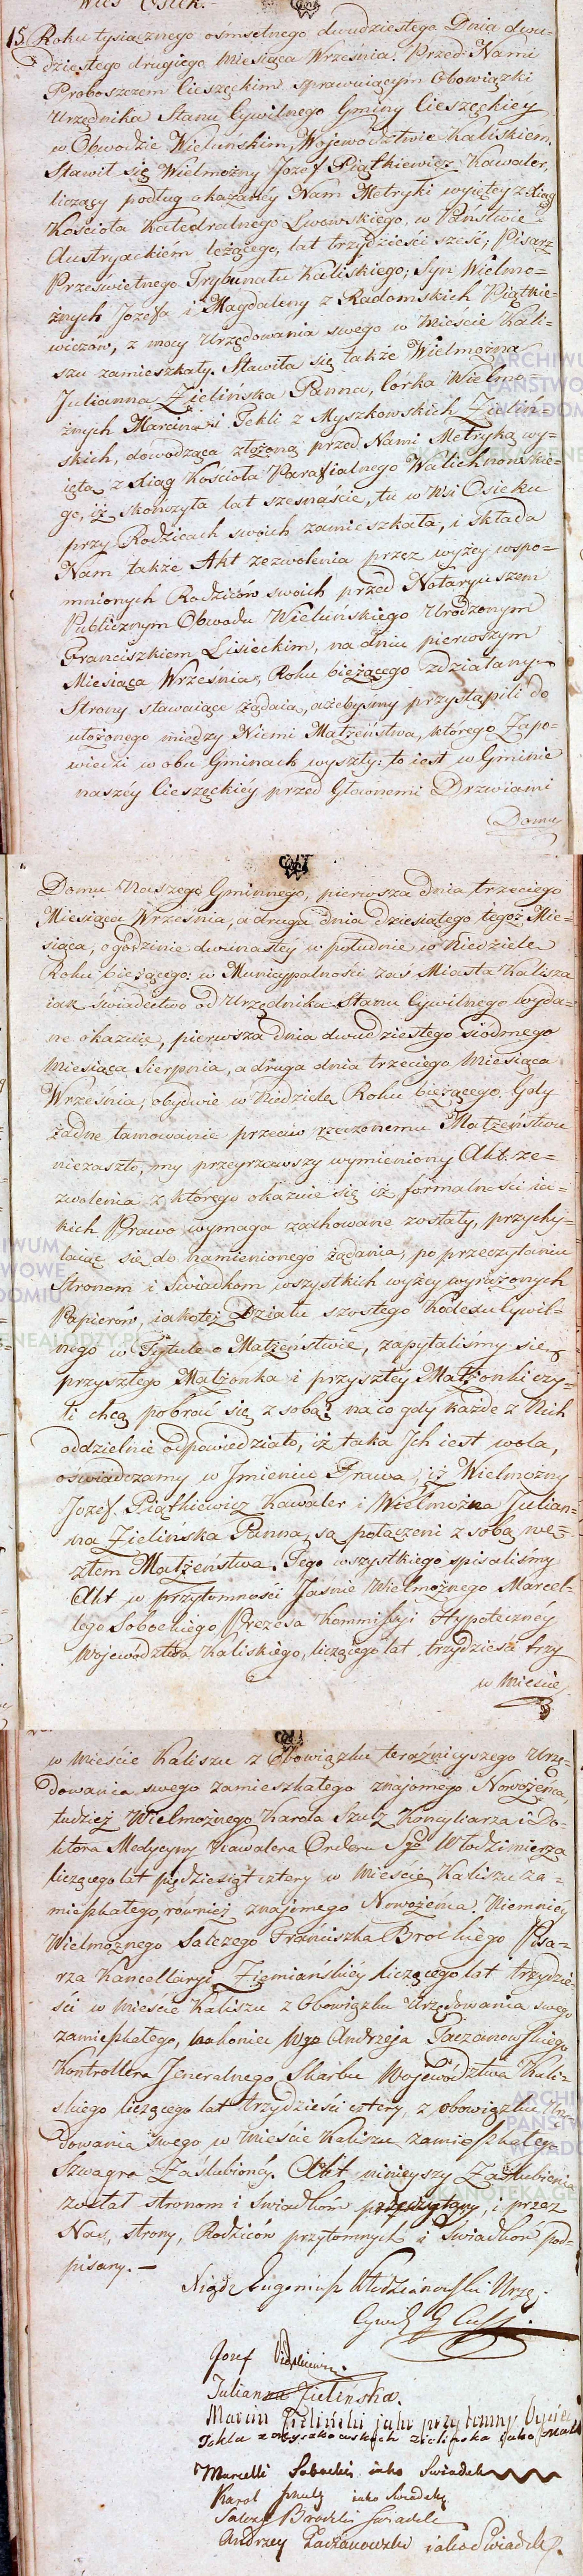 Wieś Osiek.-
15. Roku tysiącznego ośmsetnego dwudziestego Dnia dwu-
dziestego drugiego Miesiąca Września. Przed Nami
Proboszczem Cieszęckim sprawuiącym Obowiązki
Urzędnika Stanu Cywilnego Gminy Cieszęckiey
w Obwodzie Wieluńskim, Województwie Kaliskiem,
Stawił się Wielmożny Jozef Piątkiewicz Kawaler,
liczący podług okazanéy Nam Metryki wyiętey z Xiąg
Kościoła Katedralnego Lwowskiego, w Państwie
Austryackiém leżącego, lat trzydzieści sześć, Pisarz
Prześwietnego Trybunału Kaliskiego, Syn Wielmo-
żnych Jozefa i Magdaleny z Radomskich Piątkie-
wiczów, z mocy Urzędowania swego w Mieście Kali-
szu zamieszkały. Stawiła się także Wielmożna
Julianna Zielińska Panna, Córka Wielmo-
żnych Marcina i Tekli z Myszkowskich Zieliń-
skich, dowodząca złożoną przed Nami Metryką wy-
iętą z Xiąg Kościoła Parafialnego Walichnowskie-
go, iż skończyła lat szesnaście, tu w Wsi Osieku
przy Rodzicach swoich zamieszkała, i składa
Nam także Akt zezwolenia przez wyżey wspo-
mnionych Rodziców swoich przed Notaryuszem
Publicznym Obwodu Wieluńskiego Urodzonym
Franciszkiem Lisieckim, na dniu pierwszym
Miesiąca Września, Roku bieżącego zdziałany.
Strony stawaiące żądaią, ażebyśmy przystąpili do
ułożonego między Niemi Małżeństwa, którego Zapo-
wiedzi w obu Gminach wyszły: to iest w Gminie
naszéy Cieszęckiéy przed Głównemi Drzwiami
Domu
Domu Naszego Gminnego, pierwsza dnia trzeciego
Miesiąca Września, a druga dnia dziesiątego tegoż Mie-
siąca, o godzinie dwunastéy w południe w Niedziele
Roku bieżącego: w Municypalności zaś Miasta Kalisza
iak świadectwo od Urzędnika Stanu Cywilnego wyda-
ne okazuie, pierwsza dnia dwudziestego siódmego
Miesiąca Sierpnia, a druga dnia trzeciego Miesiąca
Września, obydwie w Niedziele Roku bieżącego. Gdy
żadne tamowanie przeciw rzeczonemu Małżeństwu
niezaszło, my przeyrzawszy wymieniony Akt ze-
zwolenia z którego okazuie się iż formalności ia-
kich Prawo wymaga zachowane zostały, przychy-
laiąc się do namienionego żądania, po przeczytaniu
Stronom i Świadkom wszystkich wyżey wyrażonych
Papierów, iakoteż Działu szóstego Kodexu Cywil-
nego w Tytule o Małżeństwie, zapytaliśmy się
przyszłego Małżonka i przyszłey Małżonki czy-
li chcą pobrać się z sobą? na co gdy każde z Nich
oddzielnie odpowiedziało, iż taka Ich iest wola,
oświadczamy w Imieniu Prawa, iż Wielmożny
Jozef Piątkiewicz Kawaler i Wielmożna Julian-
na Zielińska Panna, są połączeni z sobą wę-
złem Małżeństwa. Tego wszystkiego spisaliśmy
Akt w przytomności Jaśnie Wielmożnego Marcel-
lego Sobockiego Prezesa Kommissyi Hypoteczney
Województwa Kaliskiego, liczącego lat trzydzieści trzy
w Mieście
w Mieście Kaliszu z Obowiązku teraznieyszego Urzę-
dowania swego zamieszkałego znajomego Nowożeńca,
tudzież Wielmożnego Karola Szulz Konsyliarza i Do-
ktora Medycyny Kawalera Orderu Sgo Włodzimierza
liczącego lat pięćdziesiąt cztery w Mieście Kaliszu za-
mieszkałego, równiéż znajomego Nowożeńca. Niemniéy
Wielmożnego Salezego Franciszka Brockiego Pisa-
rza Kancellaryi Ziemiańskiéy liczącego lat trzydzie-
ści w Mieście Kaliszu z Obowiązku Urzędowania swego
zamieszkałego, nakoniec Wgo Andrzeja Taczanowskiego
Kontrollera Jeneralnego Skarbu Województwa Kali-
skiego liczącego lat trzydzieści cztery z obowiązku Urzę-
dowania swego w Mieście Kaliszu zamieszkałego
Szwagra Zaślubionéy. Akt ninieyszy Zaślubienia
został stronom i Świadkom przeczytany, i przez
Nas, strony, Rodziców przytomnych i Świadków pod-
pisany. —
Xiądz Eugeniusz Włodzianowski Urzę.
Cywil. G. Ciesz.
Jozef Piątkiewicz.
Julianna Zielińska.
Marcin Zieliński jako przytomny Oyciec
Tekla z Myszkowskich Zielińska jako Matka
Marcelli Sobocki iako Swiadek
Karol Szulz iako Swiadek
Salezy Brocki Swiadek
Andrzey Taczanowski iako Swiadek.